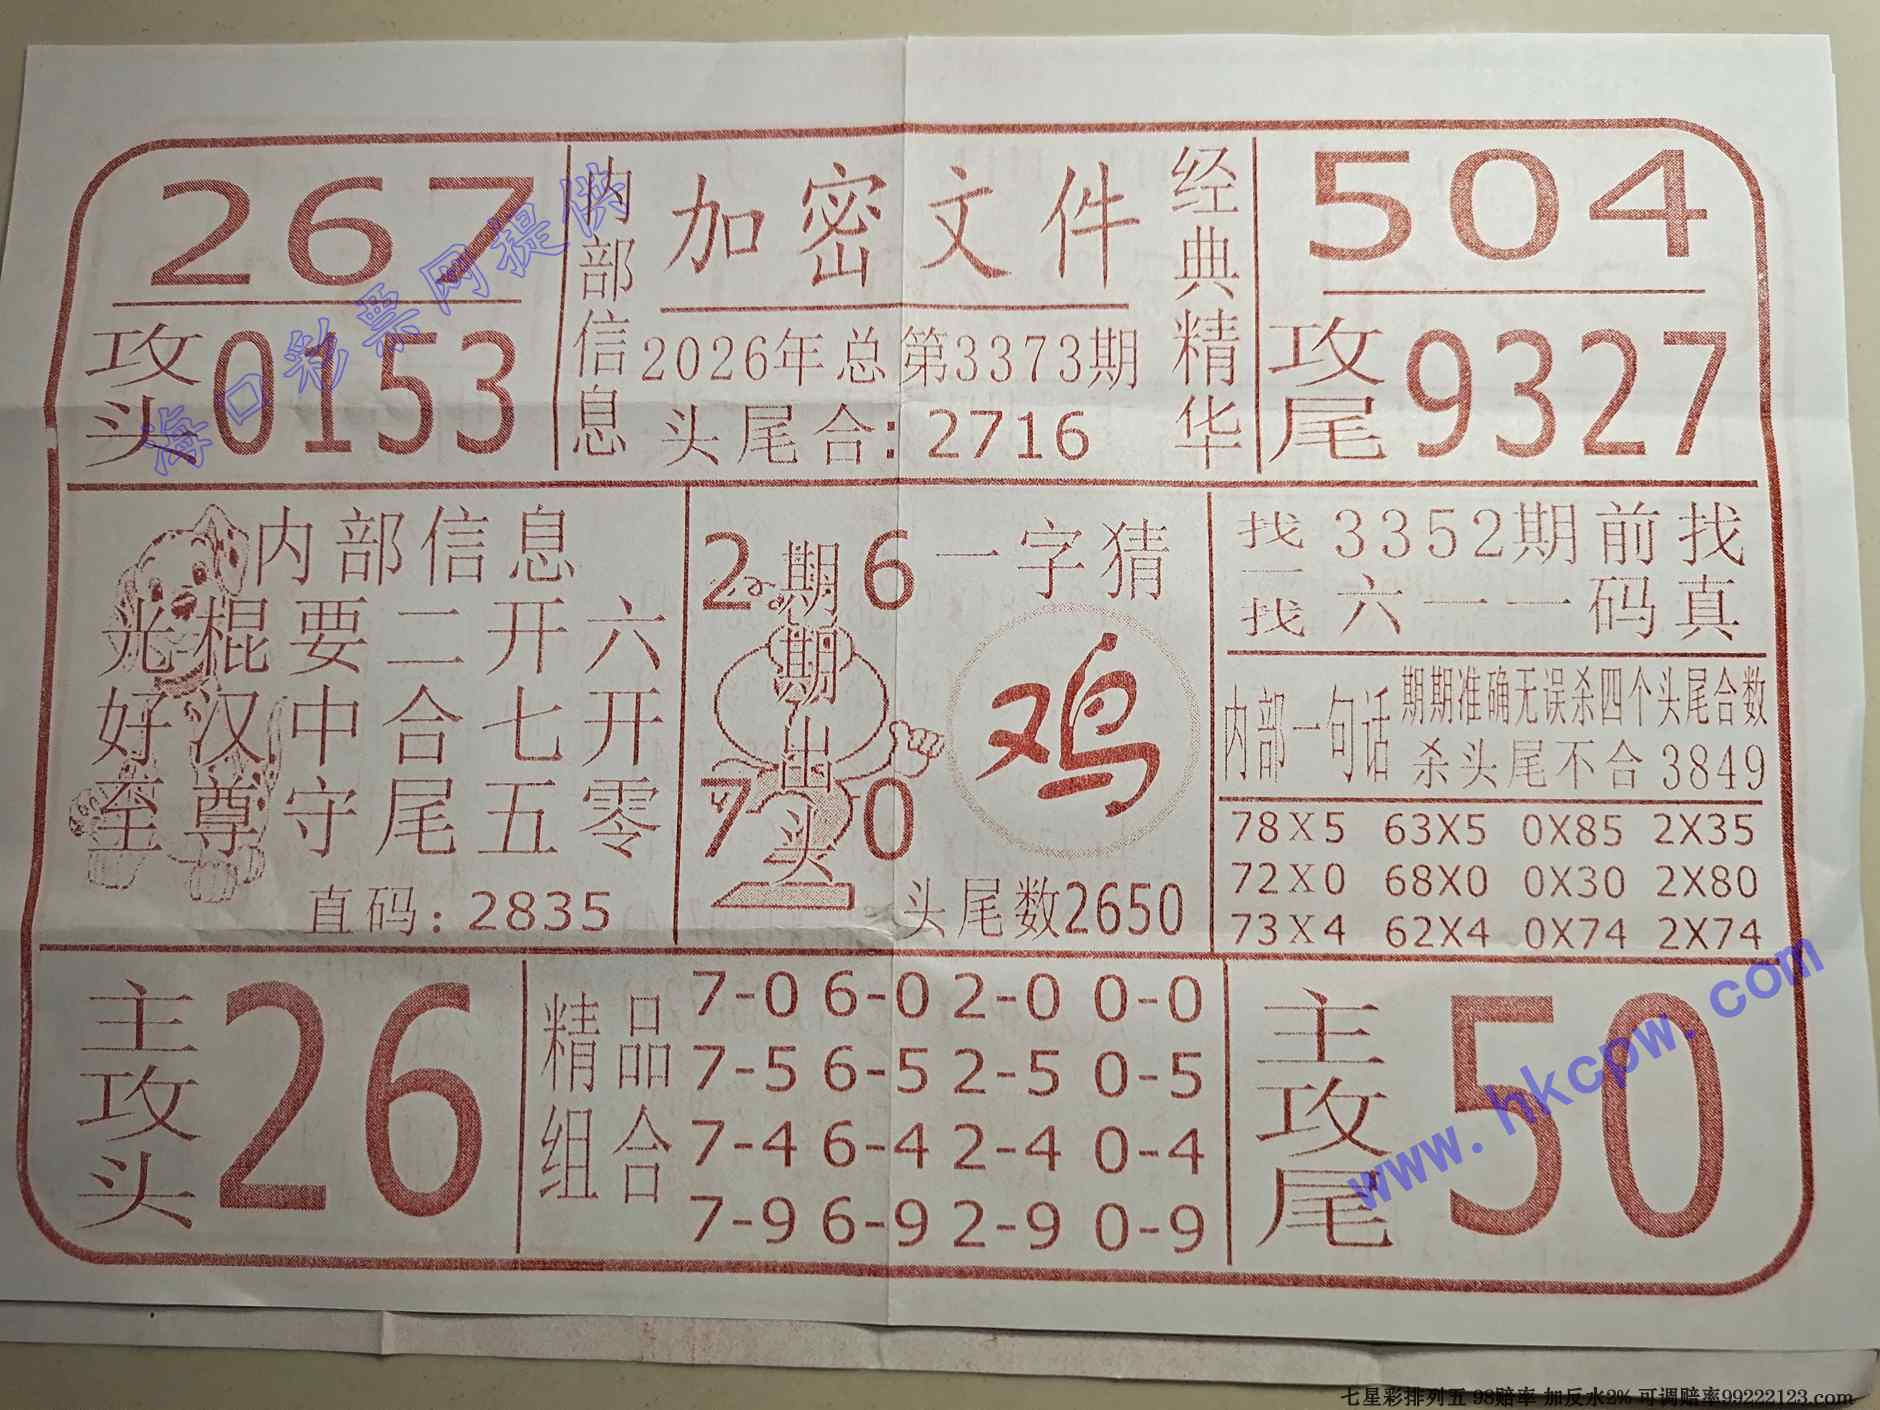 267
攻头 0153
内部信息
加密文件
2026年总第3373期
头尾合：2716
经典精华
504
攻尾 9327
内部信息
光棍要二开六
好汉中合七开
至尊守尾五零
直码：2835
2 6
期期出头
7 0
一字猜
鸡
头尾数2650
找一找
3352期前找
六一一码真
内部一句话
期期准确无误杀四个头尾合数
杀头尾不合3849
78X5 63X5 0X85 2X35
72X0 68X0 0X30 2X80
73X4 62X4 0X74 2X74
主攻头 26
精品组合
7-0 6-0 2-0 0-0
7-5 6-5 2-5 0-5
7-4 6-4 2-4 0-4
7-9 6-9 2-9 0-9
主攻尾 50
海口彩票网提供
www.hkcpw.com
七星彩排列五 98赔率 加反水2% 可调赔率99222123.com